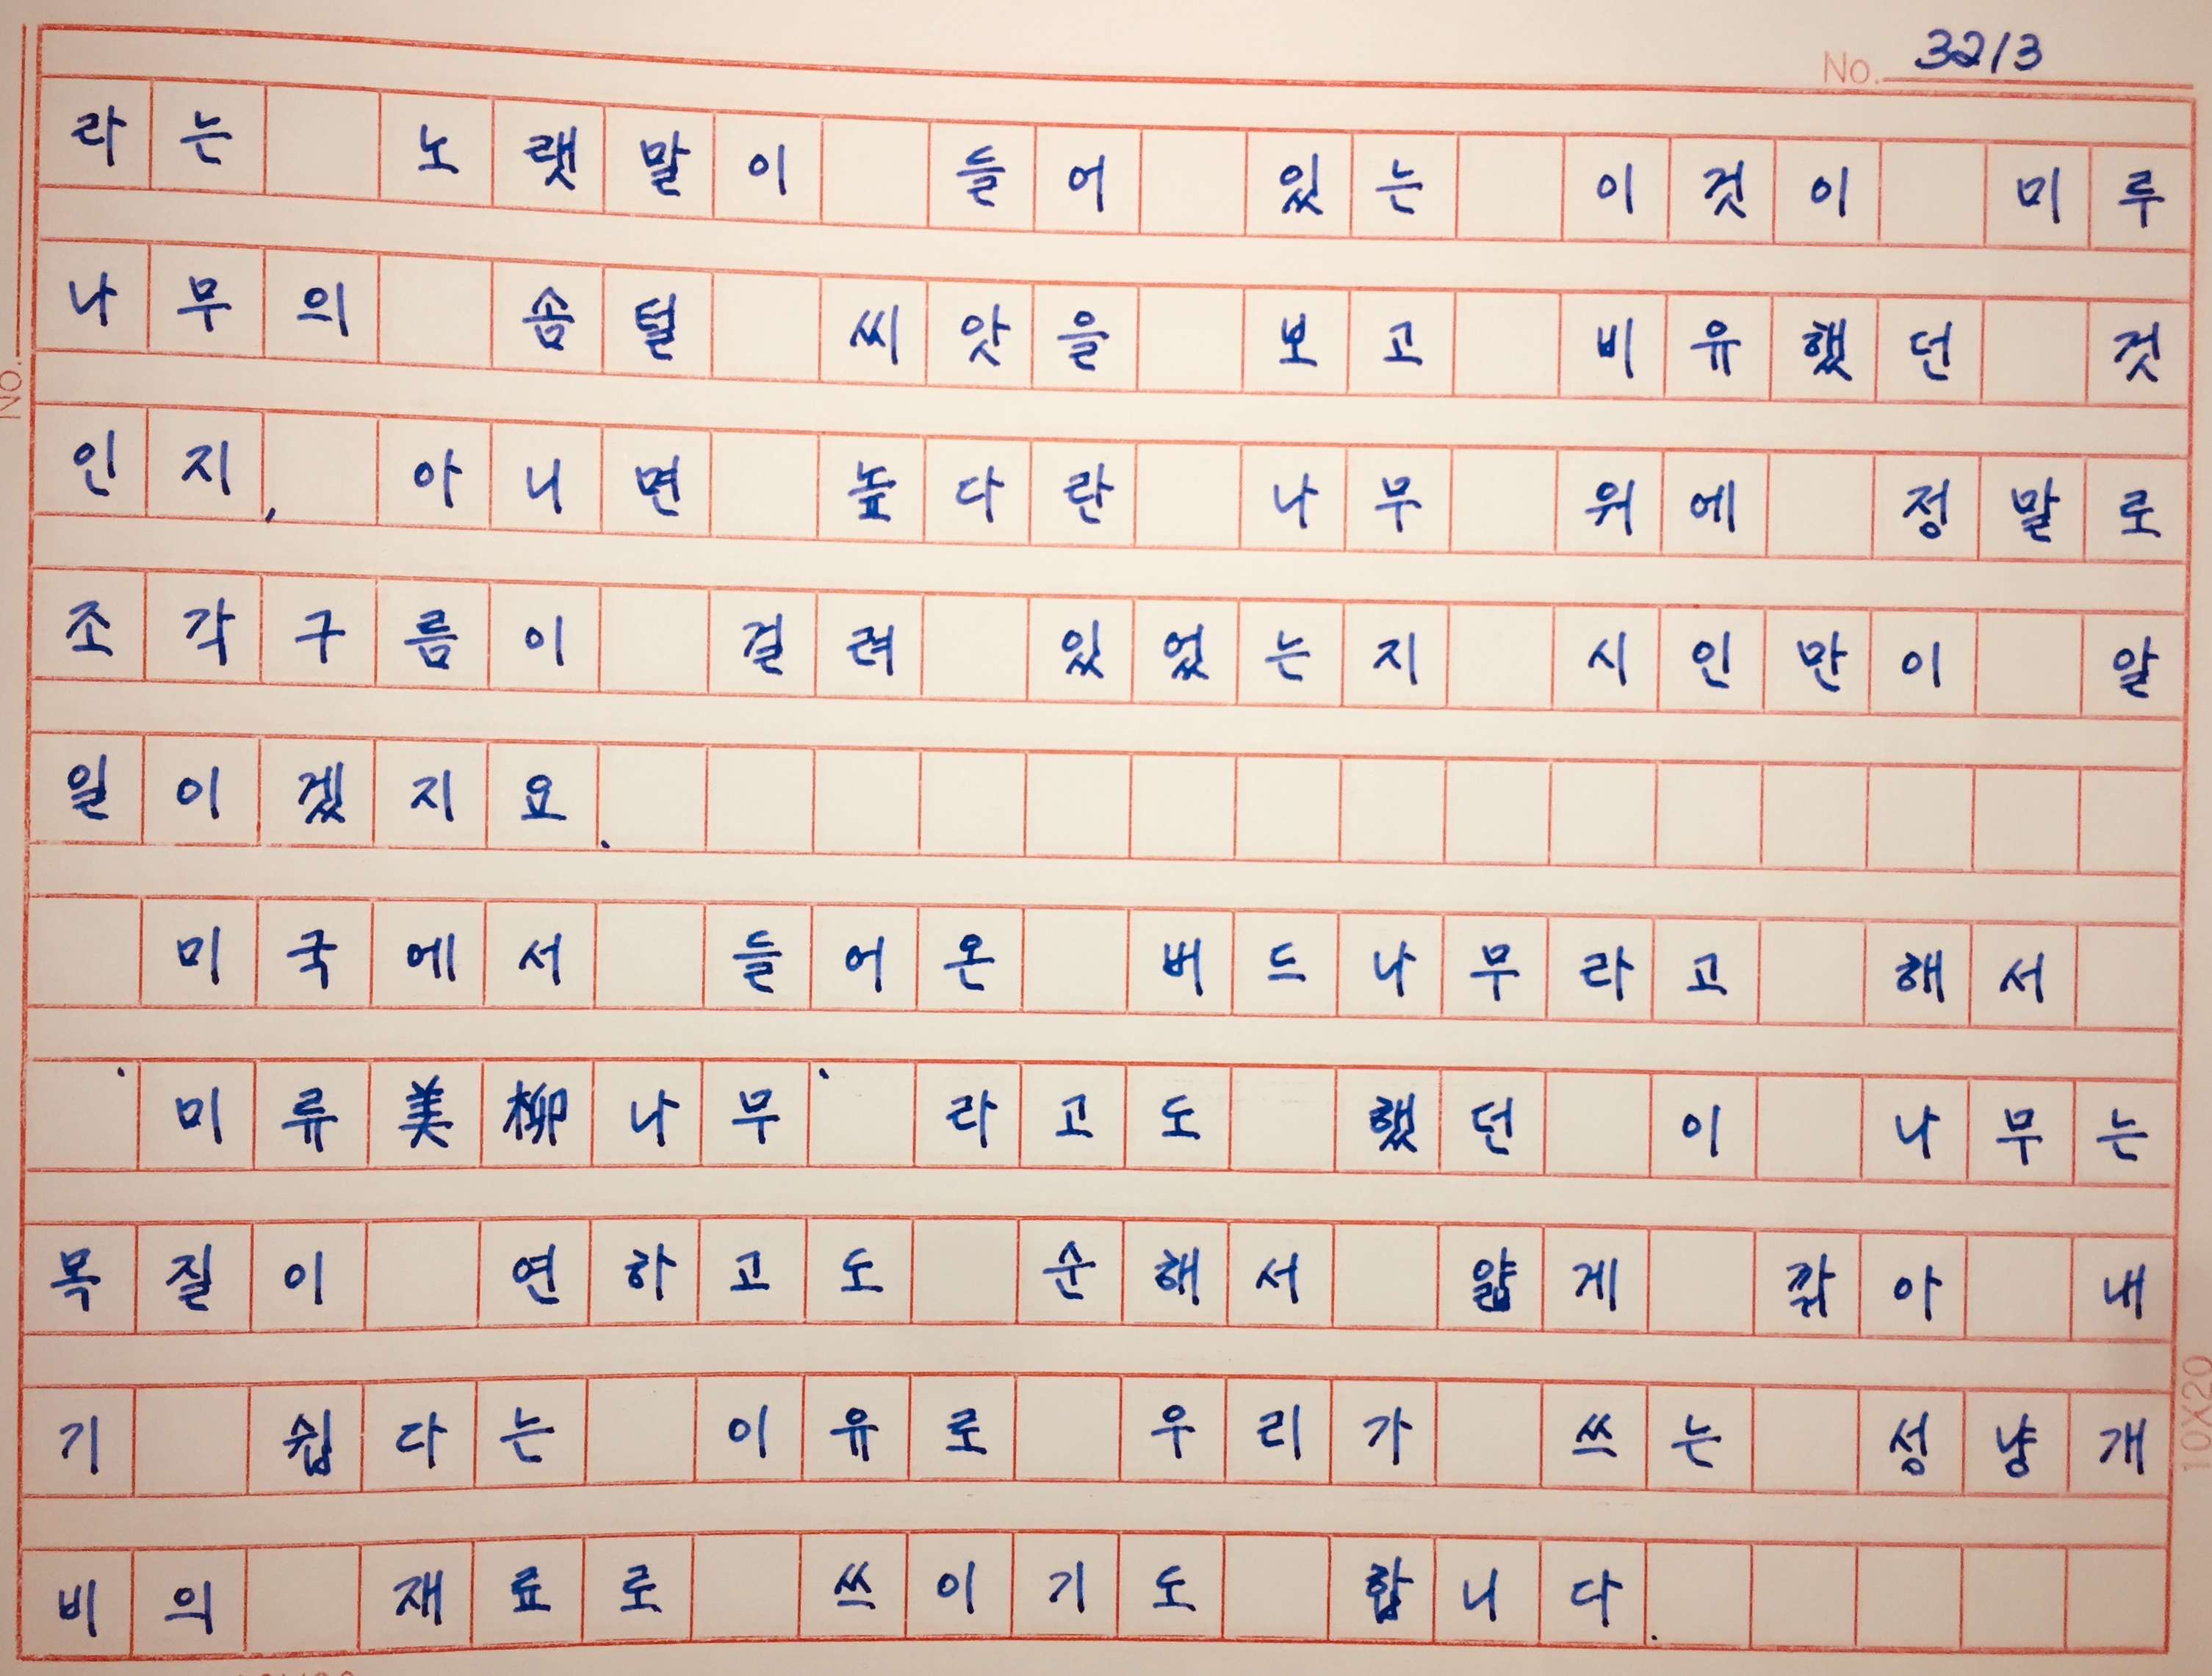 No. 3213
라는 노랫말이 들어 있는 이것이 미루
나무의 솜털 씨앗을 보고 비유했던 것
인지, 아니면 높다란 나무 위에 정말로
조각구름이 걸려 있었는지 시인만이 알
일이겠지요.
미국에서 들어온 버드나무라고 해서
'미류美柳나무'라고도 했던 이 나무는
목질이 연하고도 순해서 얇게 깎아 내
기 쉽다는 이유로 우리가 쓰는 성냥개
비의 재료로 쓰이기도 합니다.
No.
10X20